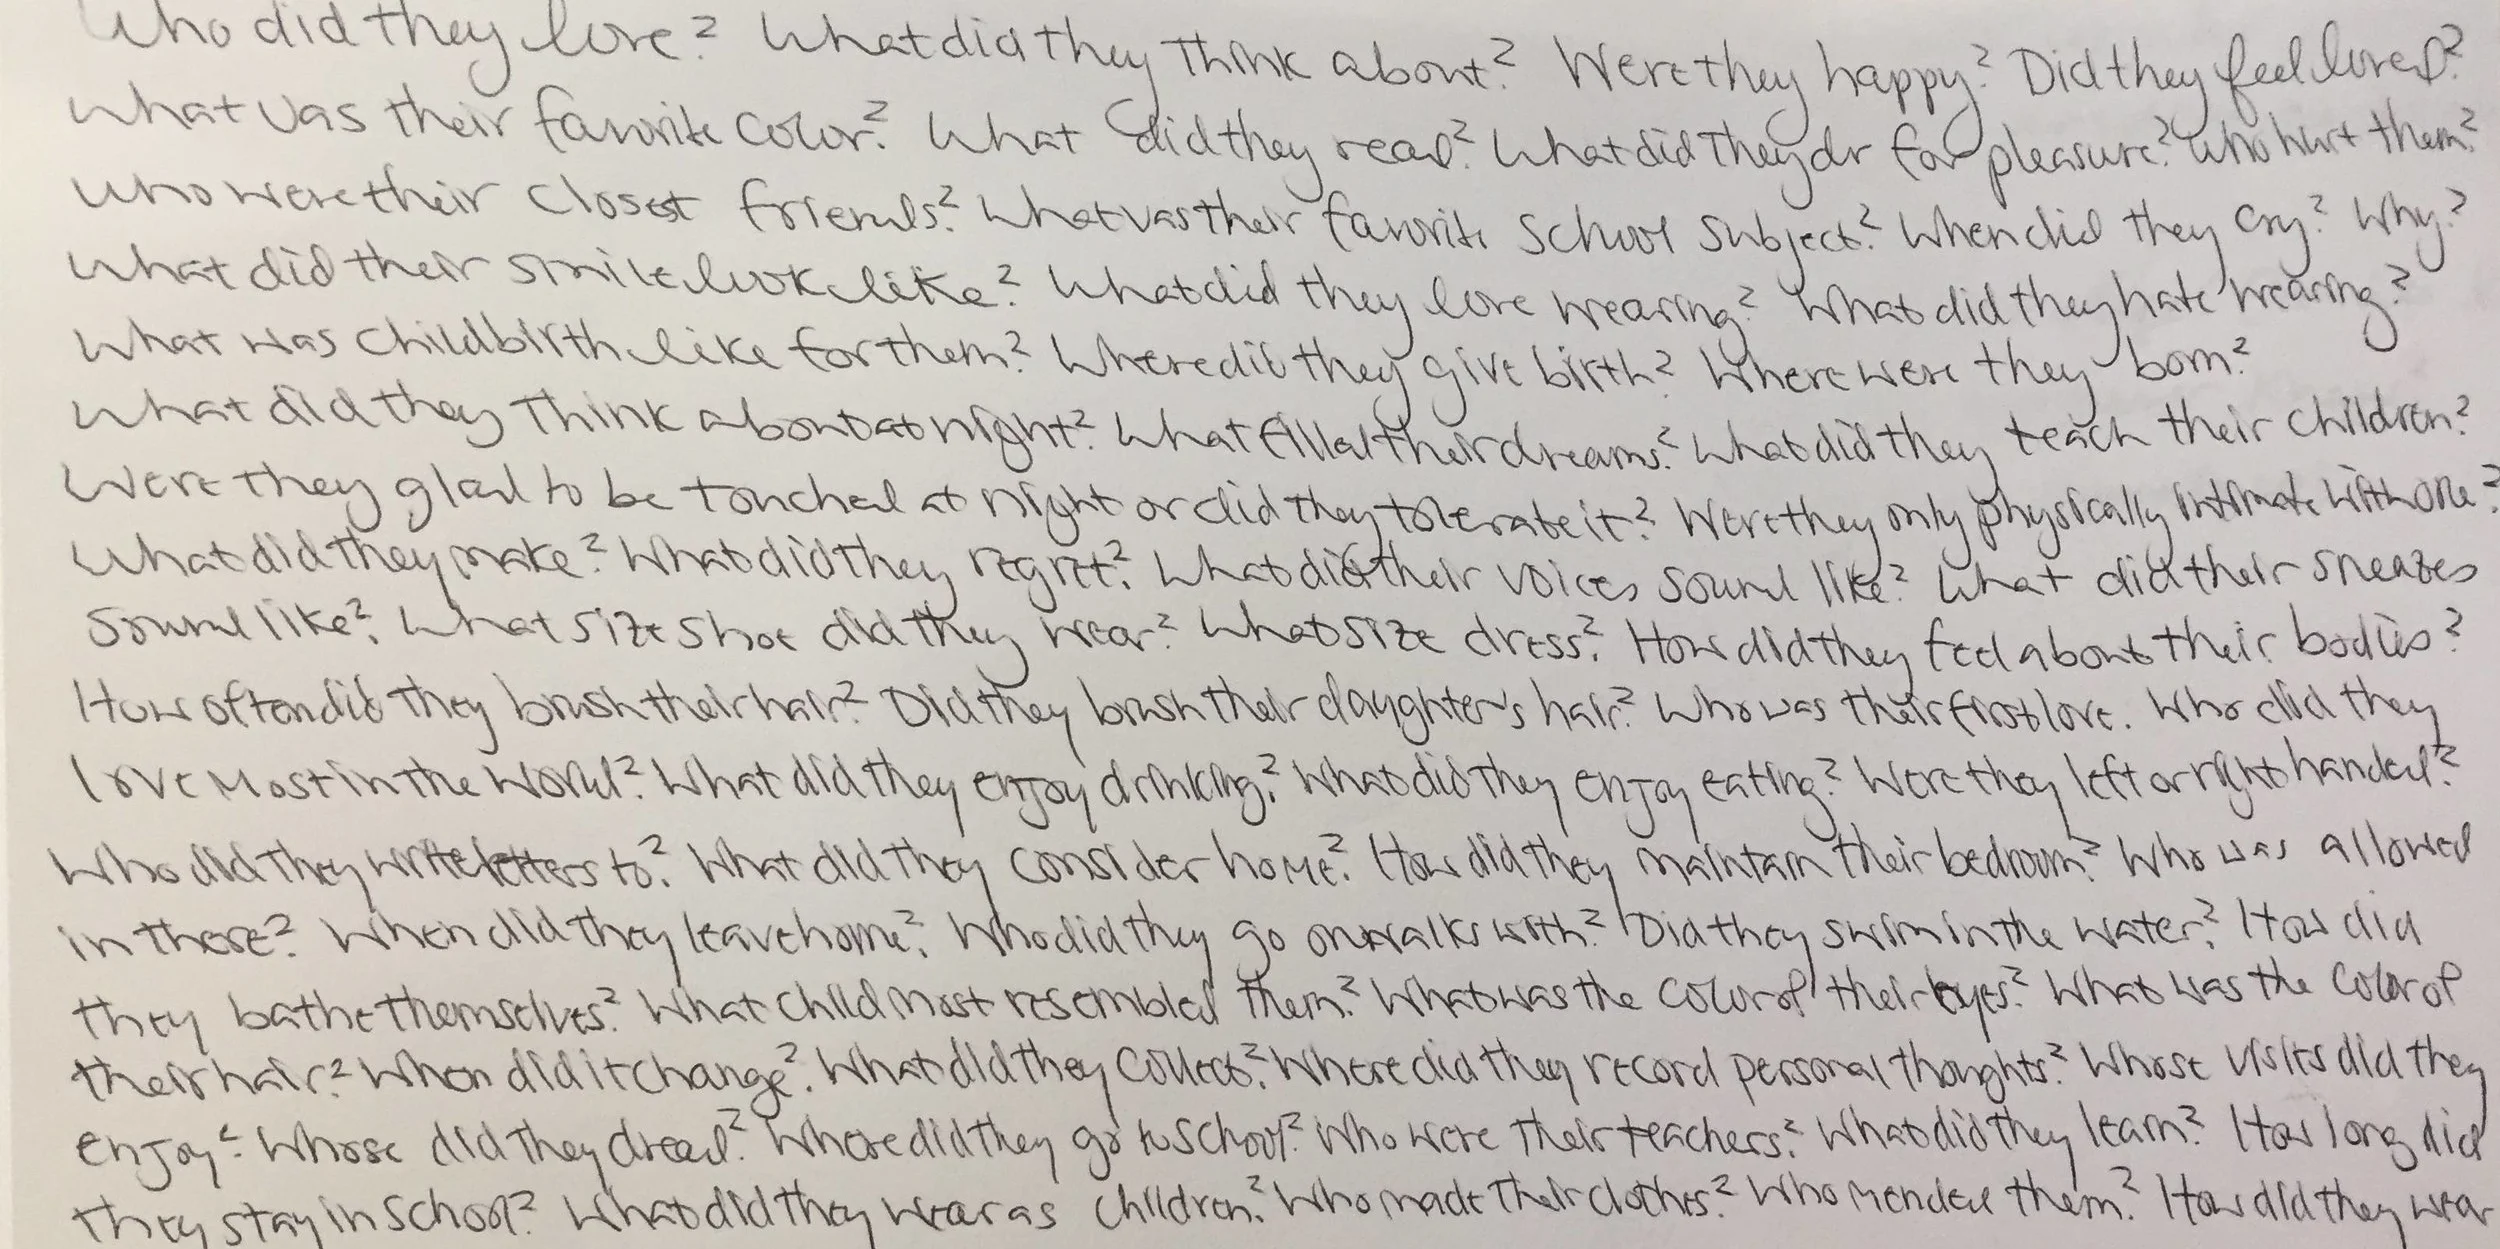 Who did they love? What did they think about? Were they happy? Did they feel loved?
What was their favorite color? What did they read? What did they do for pleasure? Who hurt them?
Who were their closest friends? What was their favorite school subject? When did they cry? Why?
What did their smile look like? What did they love wearing? What did they hate wearing?
What was childbirth like for them? Where did they give birth? Where were they born?
What did they think about at night? What filled their dreams? What did they teach their children?
Were they glad to be touched at night or did they tolerate it? Were they only physically intimate with one?
What did they make? What did they regret? What did their voices sound like? What did their sneazes
sound like? What size shoe did they wear? What size dress? How did they feel about their bodies?
How often did they brush their hair? Did they brush their daughter's hair? Who was their first love. Who did they
love most in the world? What did they enjoy drinking? What did they enjoy eating? Were they left or right handed?
Who did they write letters to? What did they consider home? How did they maintain their bedroom? Who was allowed
in there? When did they leave home? Who did they go on walks with? Did they swim in the water? How did
they bathe themselves? What child most resembled them? What was the color of their eyes? What was the color of
their hair? When did it change? What did they collect? Where did they record personal thoughts? Whose visits did they
enjoy? Whose did they dread? Where did they go to school? Who were their teachers? What did they learn? How long did
they stay in school? What did they wear as children? Who made their clothes? Who mended them? How did they wear